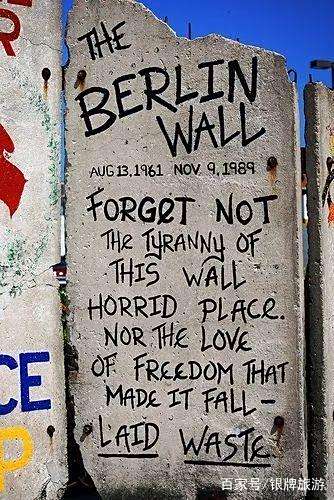 THE
BERLIN
WALL
AUG 13, 1961 NOV. 9, 1989
FORGET NOT
THE TYRANNY OF
THIS WALL
HORRID PLACE.
NOR THE LOVE
OF FREEDOM THAT
MADE IT FALL –
LAID WASTE
R
CE
P
百家号/银牌旅游